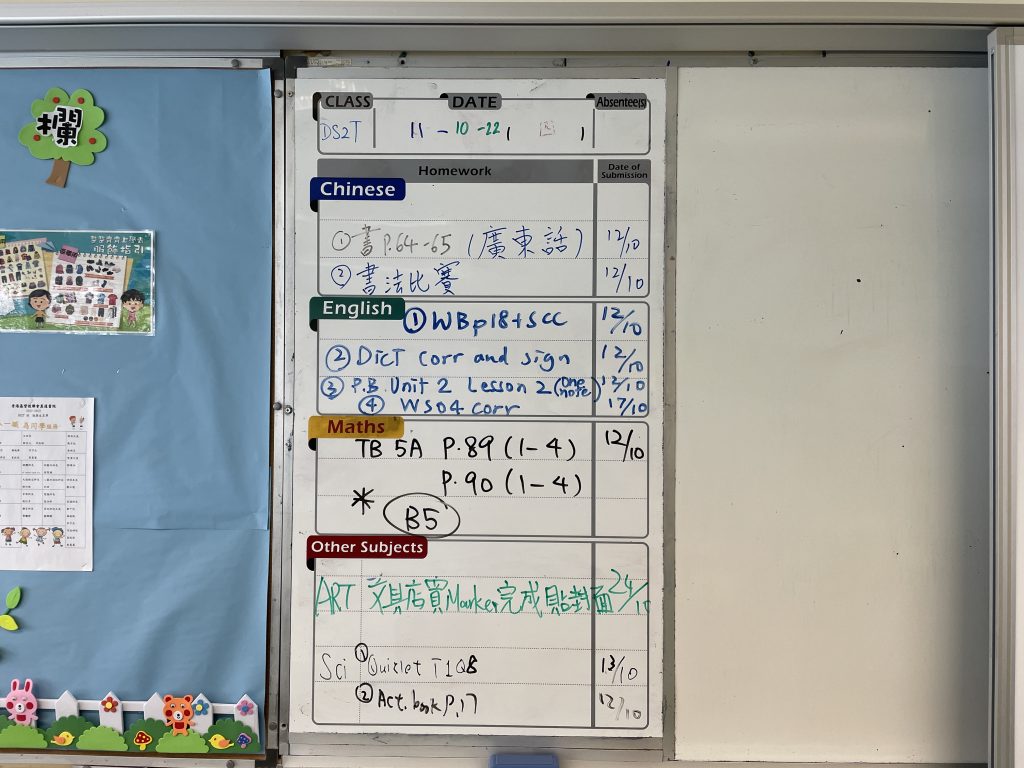 欄
服飾指引
CLASS DATE Absentee(s)
DS2T 11-10-22( )
Homework Date of Submission
Chinese
① 書 P.64-65 (廣東話) 12/10
② 書法比賽 12/10
English
① WBp18+SCC 12/10
② Dict corr and sign 12/10
③ P.B. Unit 2 Lesson 2 (One note) 13/10
④ WS04 corr 17/10
Maths
TB 5A P.89 (1-4) 12/10
P.90 (1-4)
* B5
Other Subjects
ART 文具店買Marker完成貼封面 24/10
Sci ① Quizlet T1Q8 13/10
② Act. book P.17 12/10